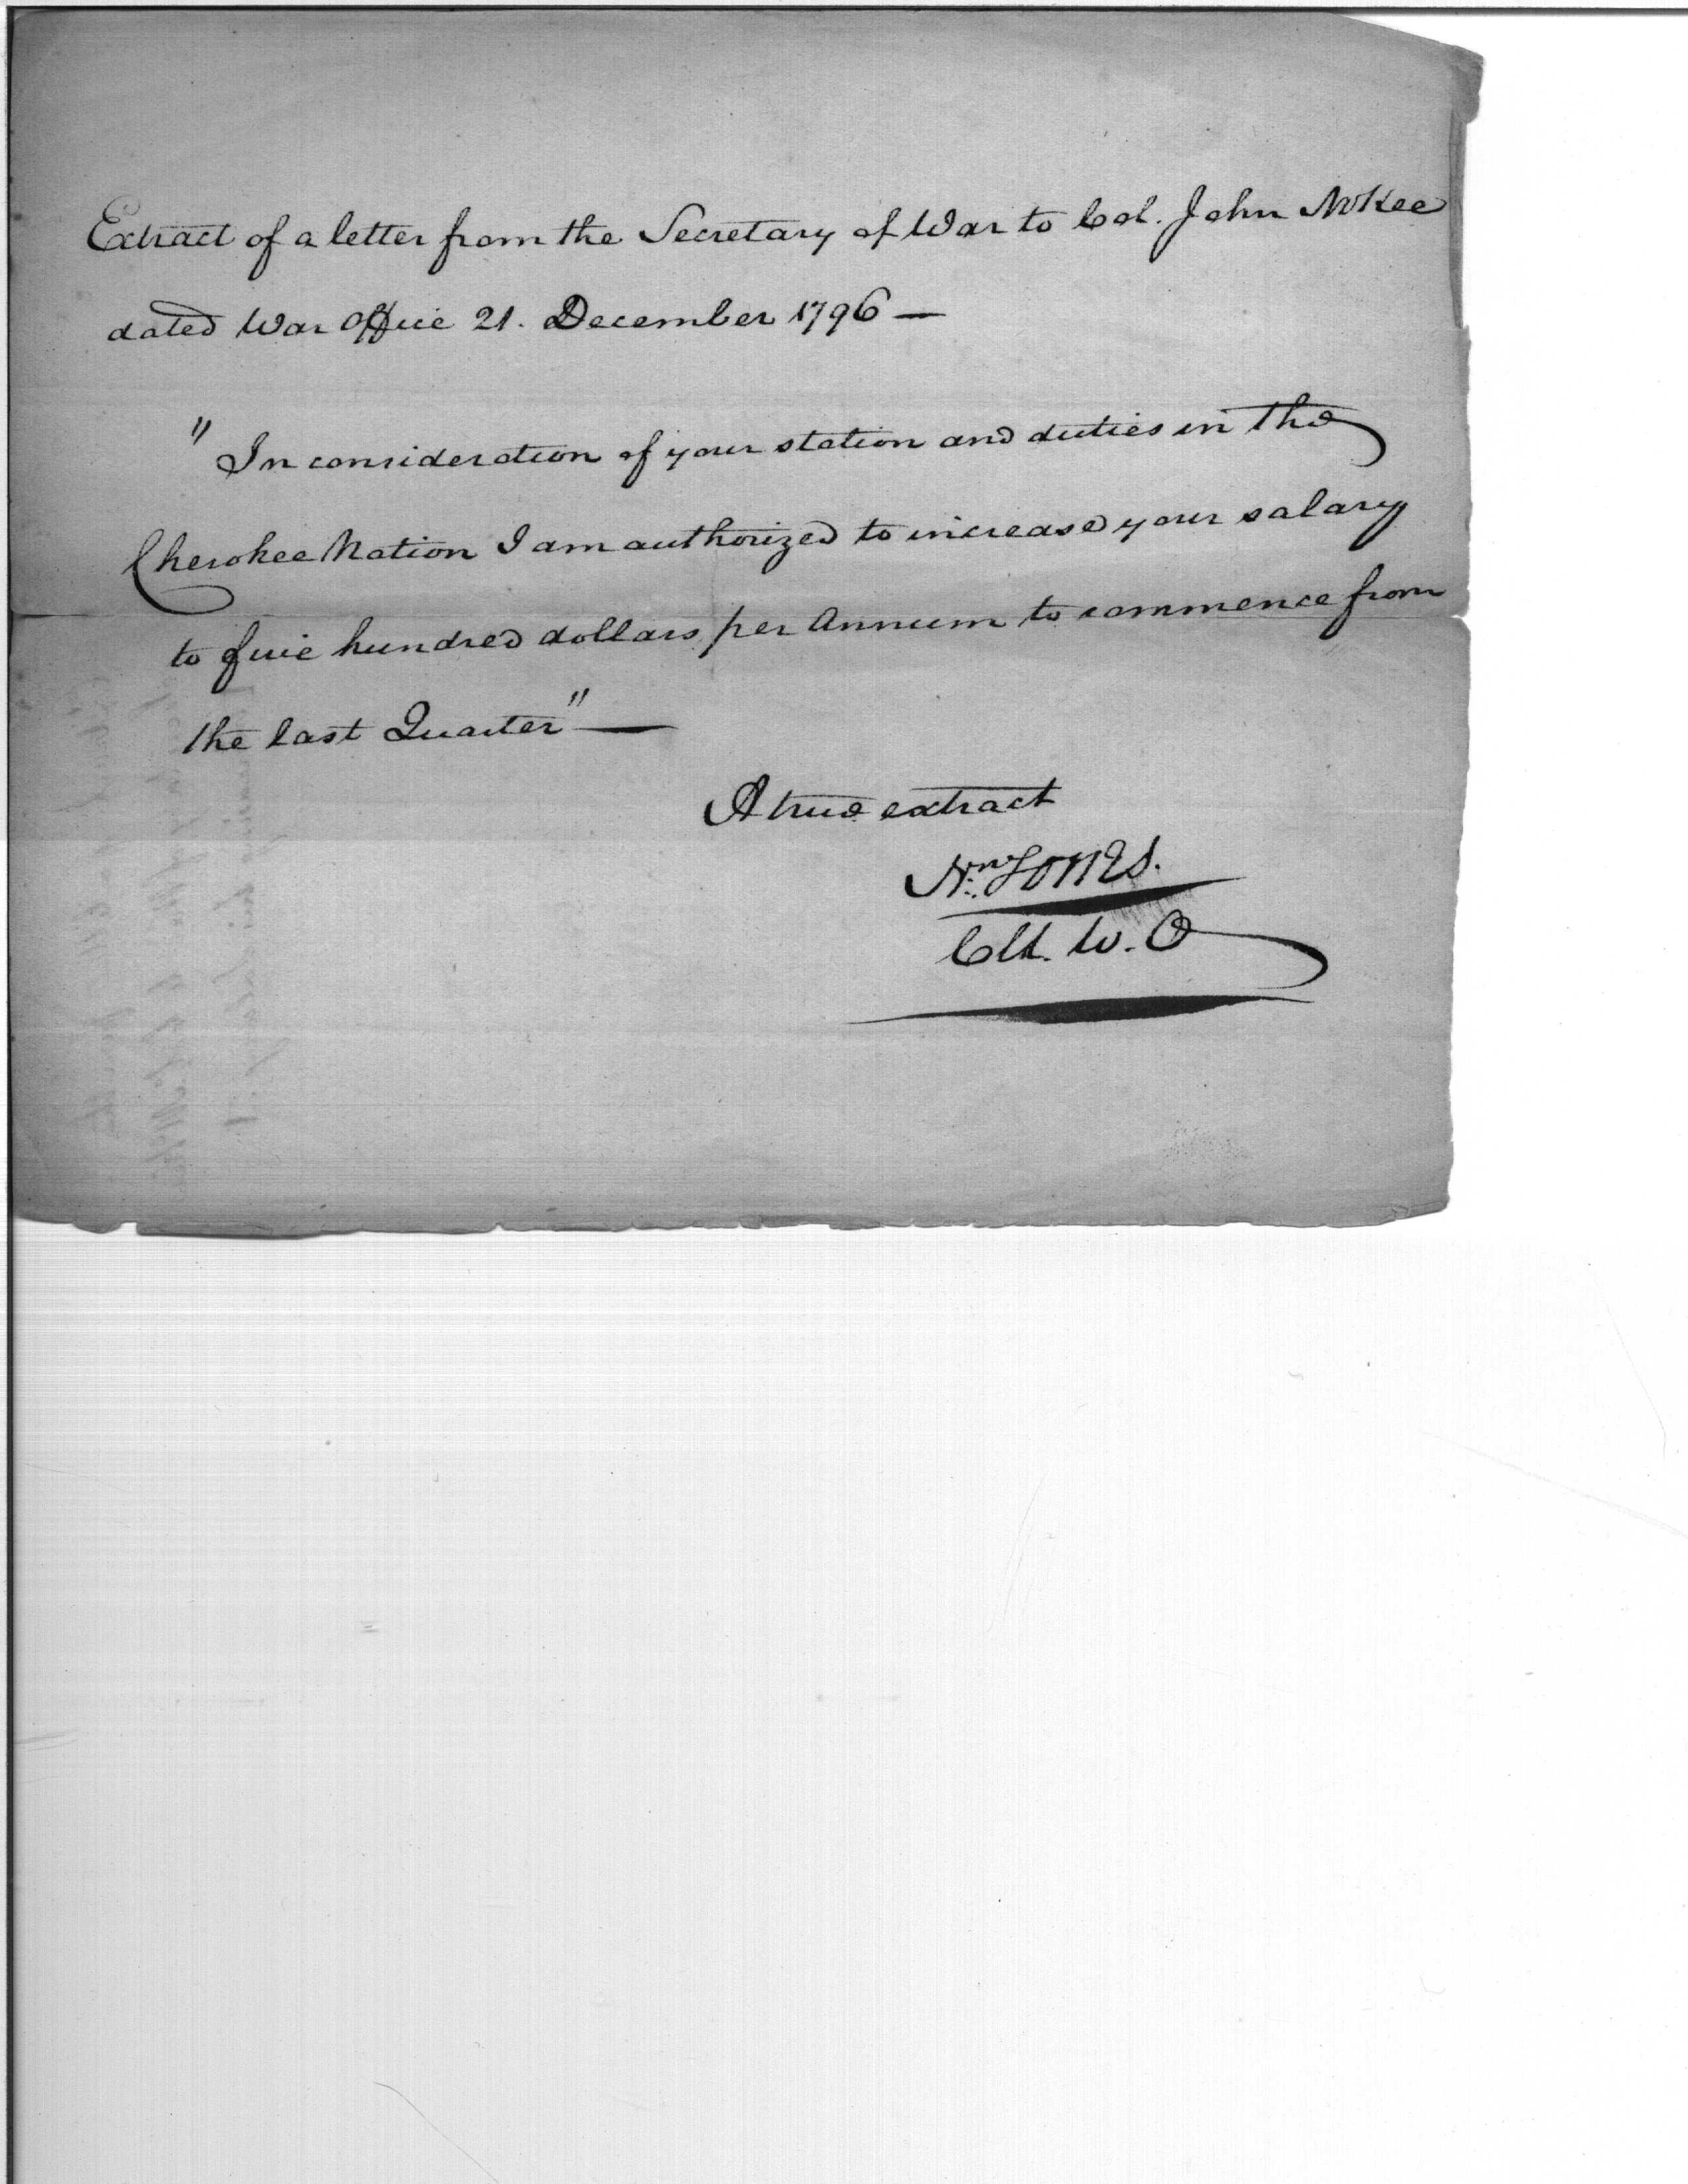 Extract of a letter from the Secretary of War to Col. John McKee
dated War Office 21. December 1796 —
"In consideration of your station and duties in the
Cherokee Nation I am authorized to increase your salary
to five hundred dollars per Annum to commence from
the last Quarter" —
A true extract
Nn. Jones.
Clk. W. O